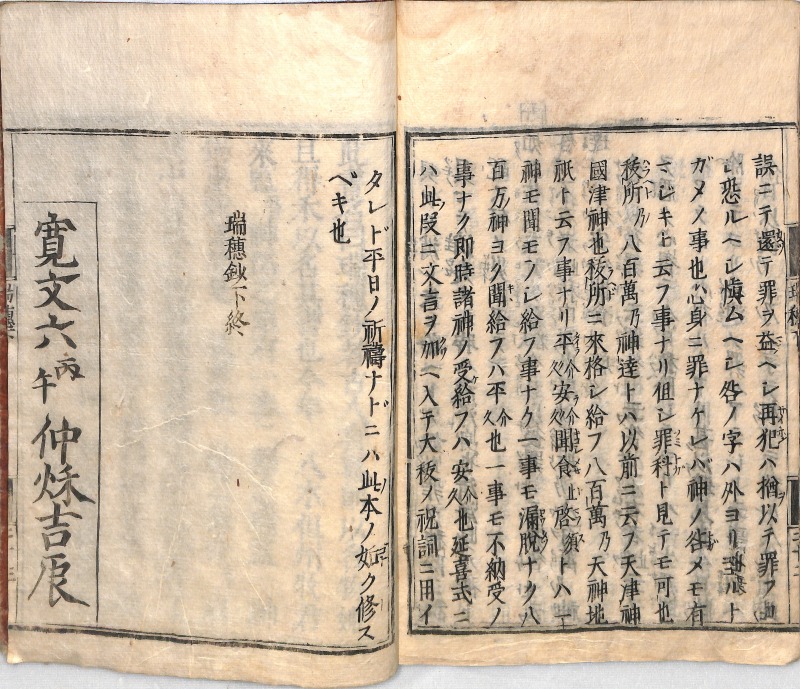 誤ニテ還テ罪ヲ益ヘシ再犯ハ猶以テ罪フカ
シ恐ルヘシ慎ムヘシ咎ノ字ハ外ヨリ至ルト
ガメノ事也心身ニ罪ナケレバ神ノ咎メモ有
ニシキト云フ事ナリ但シ罪科ト見テモ可也
秡所乃八百萬乃神達トハ以前ニ云フ天津神
國津神也秡所ニ來格シ給フ八百萬乃天神地
祇ト云フ事ナリ平介久安介久聞食止啓須トハ一
神モ聞モラシ給フ事ナク一事モ漏脱ナク八
百万神ヨク聞給フハ平介久也一事モ不納受ノ
事ナク即時諸神ノ受給フハ安介久也延喜式ニ
ハ此段ニ文言ヲ加ヘ入テ大秡ノ祝詞ニ用イ
タレド平日ノ祈禱ナドニハ此本ノ如ク修ス
ベキ也
瑞穗鈔下終
寛文六丙午仲秌吉辰